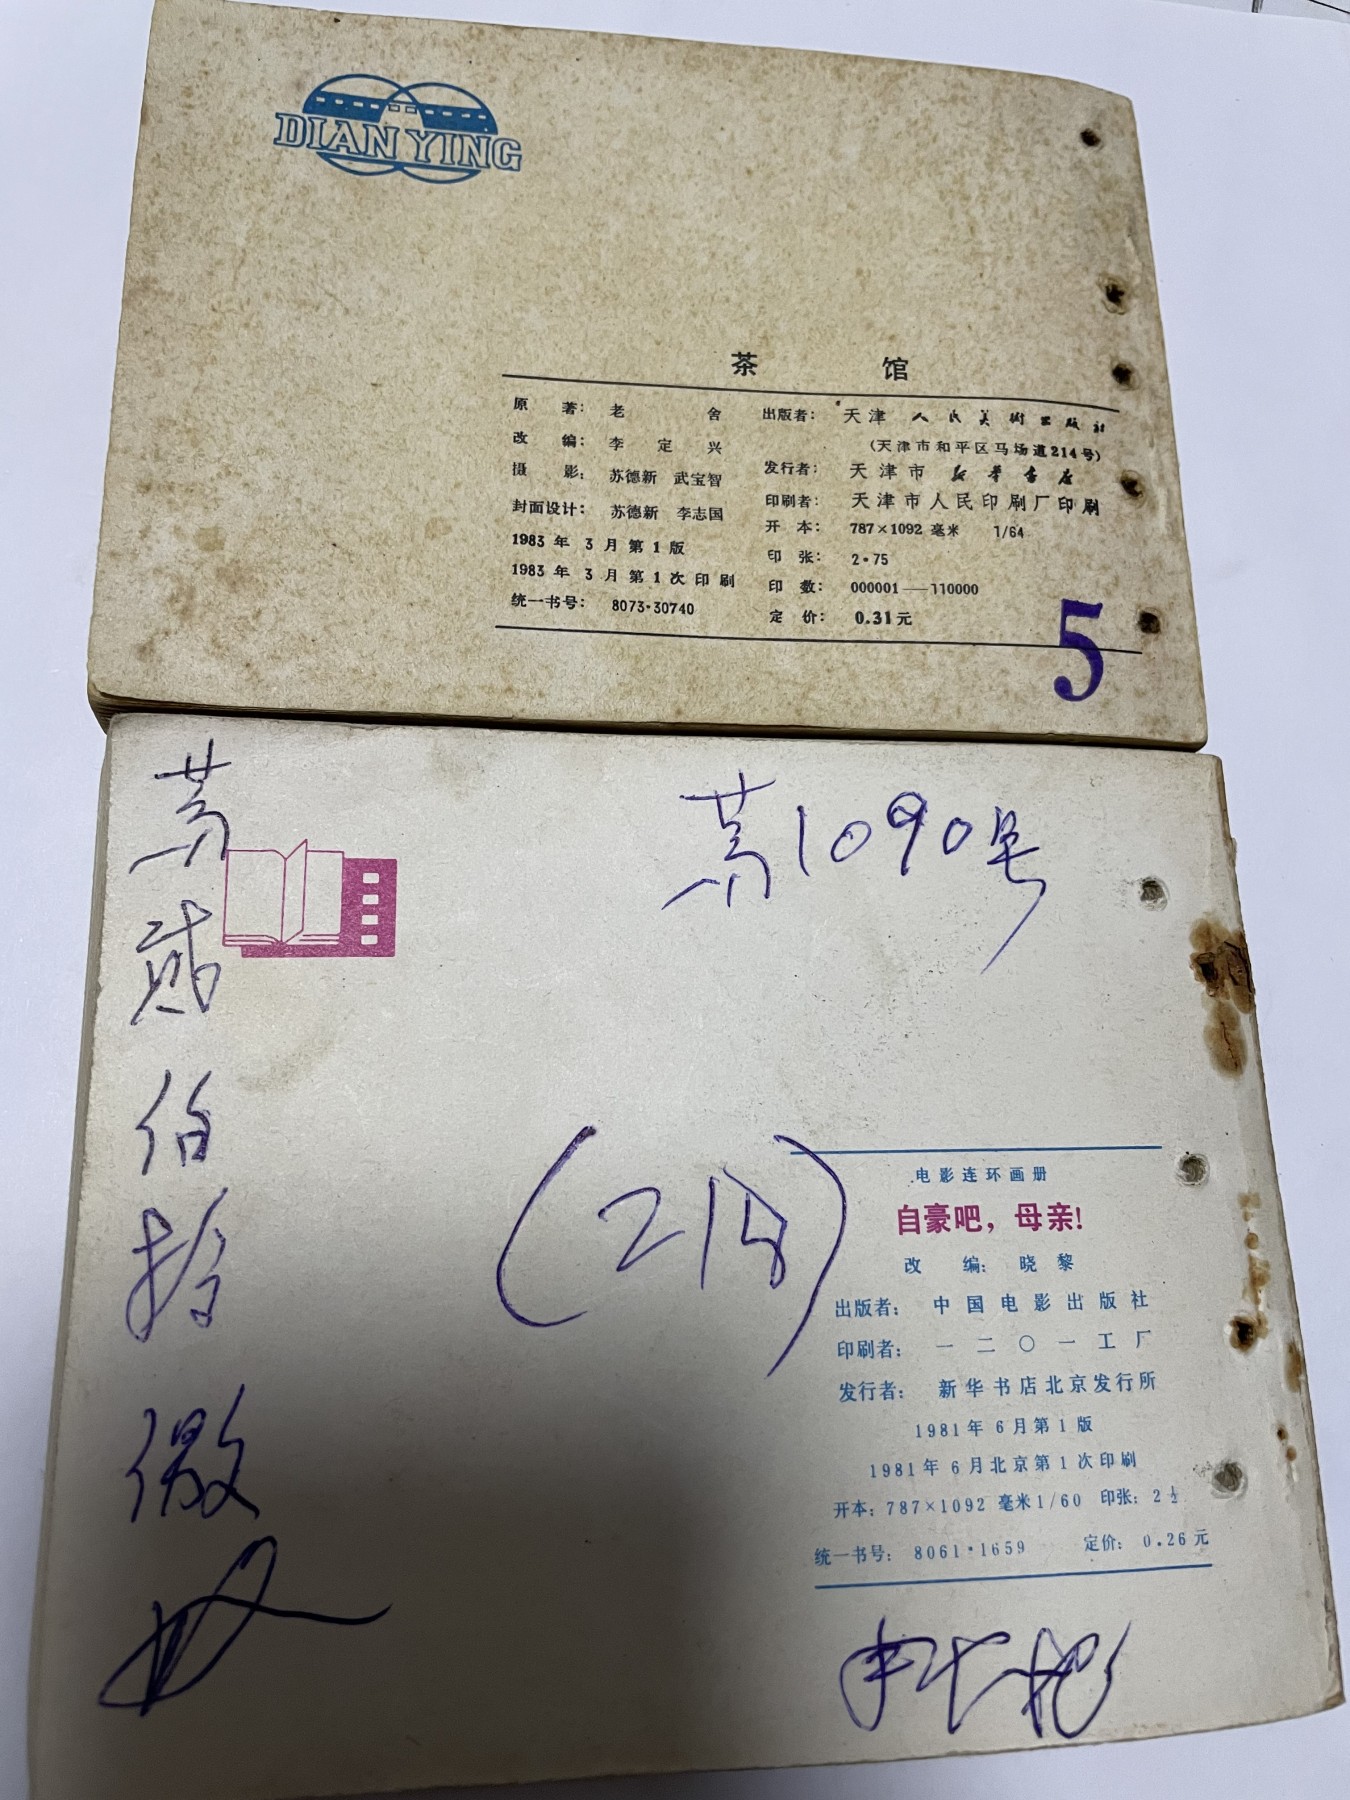 DIAN YING
茶 馆
原 著： 老 舍
改 编： 李 定 兴
摄 影： 苏德新 武宝智
封面设计： 苏德新 李志国
1983 年 3 月 第 1 版
1983 年 3 月 第 1 次 印 刷
统一书号： 8073·30740
出版者： 天津人民美術出版社
(天津市和平区马场道214号)
发行者： 天津市新華書店
印刷者： 天津市人民印刷厂印刷
开 本： 787×1092 毫米 1/64
印 张： 2·75
印 数： 000001——110000
定 价： 0.31元
5
1090号
电影连环画册
自豪吧，母亲!
改 编： 晓 黎
出版者： 中国电影出版社
印刷者： 一二〇一工厂
发行者： 新华书店北京发行所
1981年 6月第 1 版
1981年 6月北京第 1 次印刷
开本：787×1092 毫米1/60 印张：2½
统一书号：8061·1659 定价：0.26元